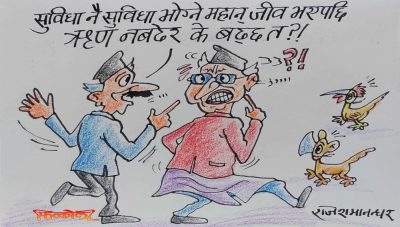 सुविधा नै सुविधा भोग्ने महान् जीव भएपछि
ऋण नबढेर के बढ्छ त?!
?!
राजेशमानन्धर